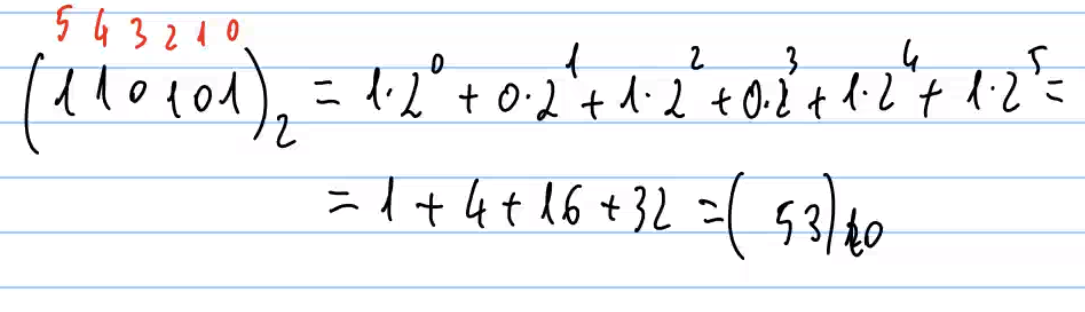 5 4 3 2 1 0
(110101)₂ = 1·2⁰ + 0·2¹ + 1·2² + 0·2³ + 1·2⁴ + 1·2⁵ =
= 1 + 4 + 16 + 32 = (53)₁₀